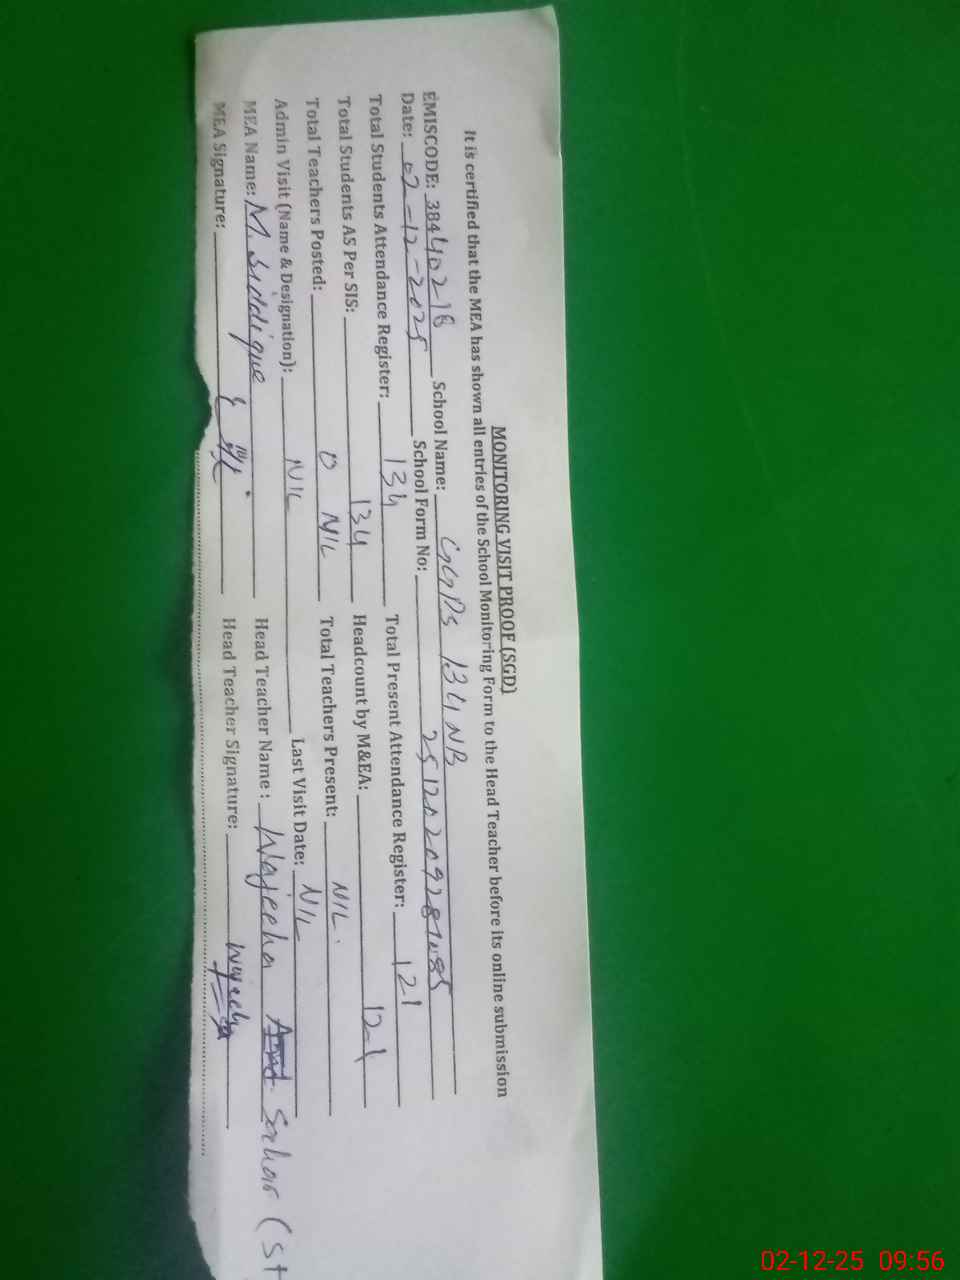 MONITORING VISIT PROOF (SGD)
It is certified that the MEA has shown all entries of the School Monitoring Form to the Head Teacher before its online submission
EMISCODE: 38440218 School Name: GGPS 134 NB
Date: 02-12-2025 School Form No:
Total Students Attendance Register: 134 Total Present Attendance Register: 121
Total Students AS Per SIS: 134 Headcount by M&EA: 121
Total Teachers Posted: 0 NIL Total Teachers Present: NIL.
Admin Visit (Name & Designation): NIL Last Visit Date: NIL
MEA Name: M. Siddique Head Teacher Name: Wajeeha Sahar (St
MEA Signature: Head Teacher Signature: Wajeeha
02-12-25 09:56